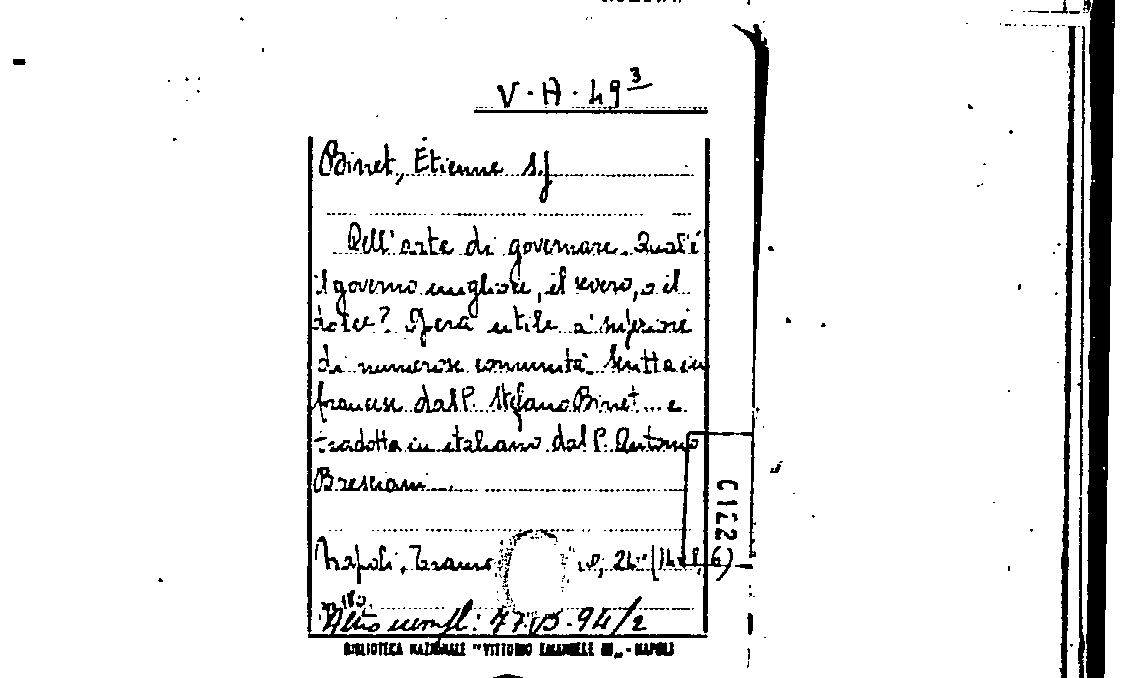 V. A. 49³
Binet, Étienne S.J
Dell'arte di governare. Qual'è
il governo migliore, il severo, o il
dolce? Opera utile a' superiori
di numerose comunità. Scritta in
francese dal P. Stefano Binet... e
tradotta in italiano dal P. Antonio
Bresciani.
Napoli, Tramo in, 24°
Altro esempl: 77.B.94/2
BIBLIOTECA NAZIONALE "VITTORIO EMANUELE III" - NAPOLI
0122